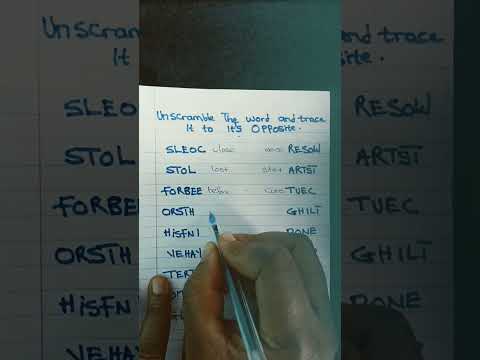 Unscramble The word and trace
It to It's Opposite.
SLEOC close RESOW
STOL lost start ARTST
FORBEE before TUEC
ORSTH GHILT
HISFNI PONE
VEHAY